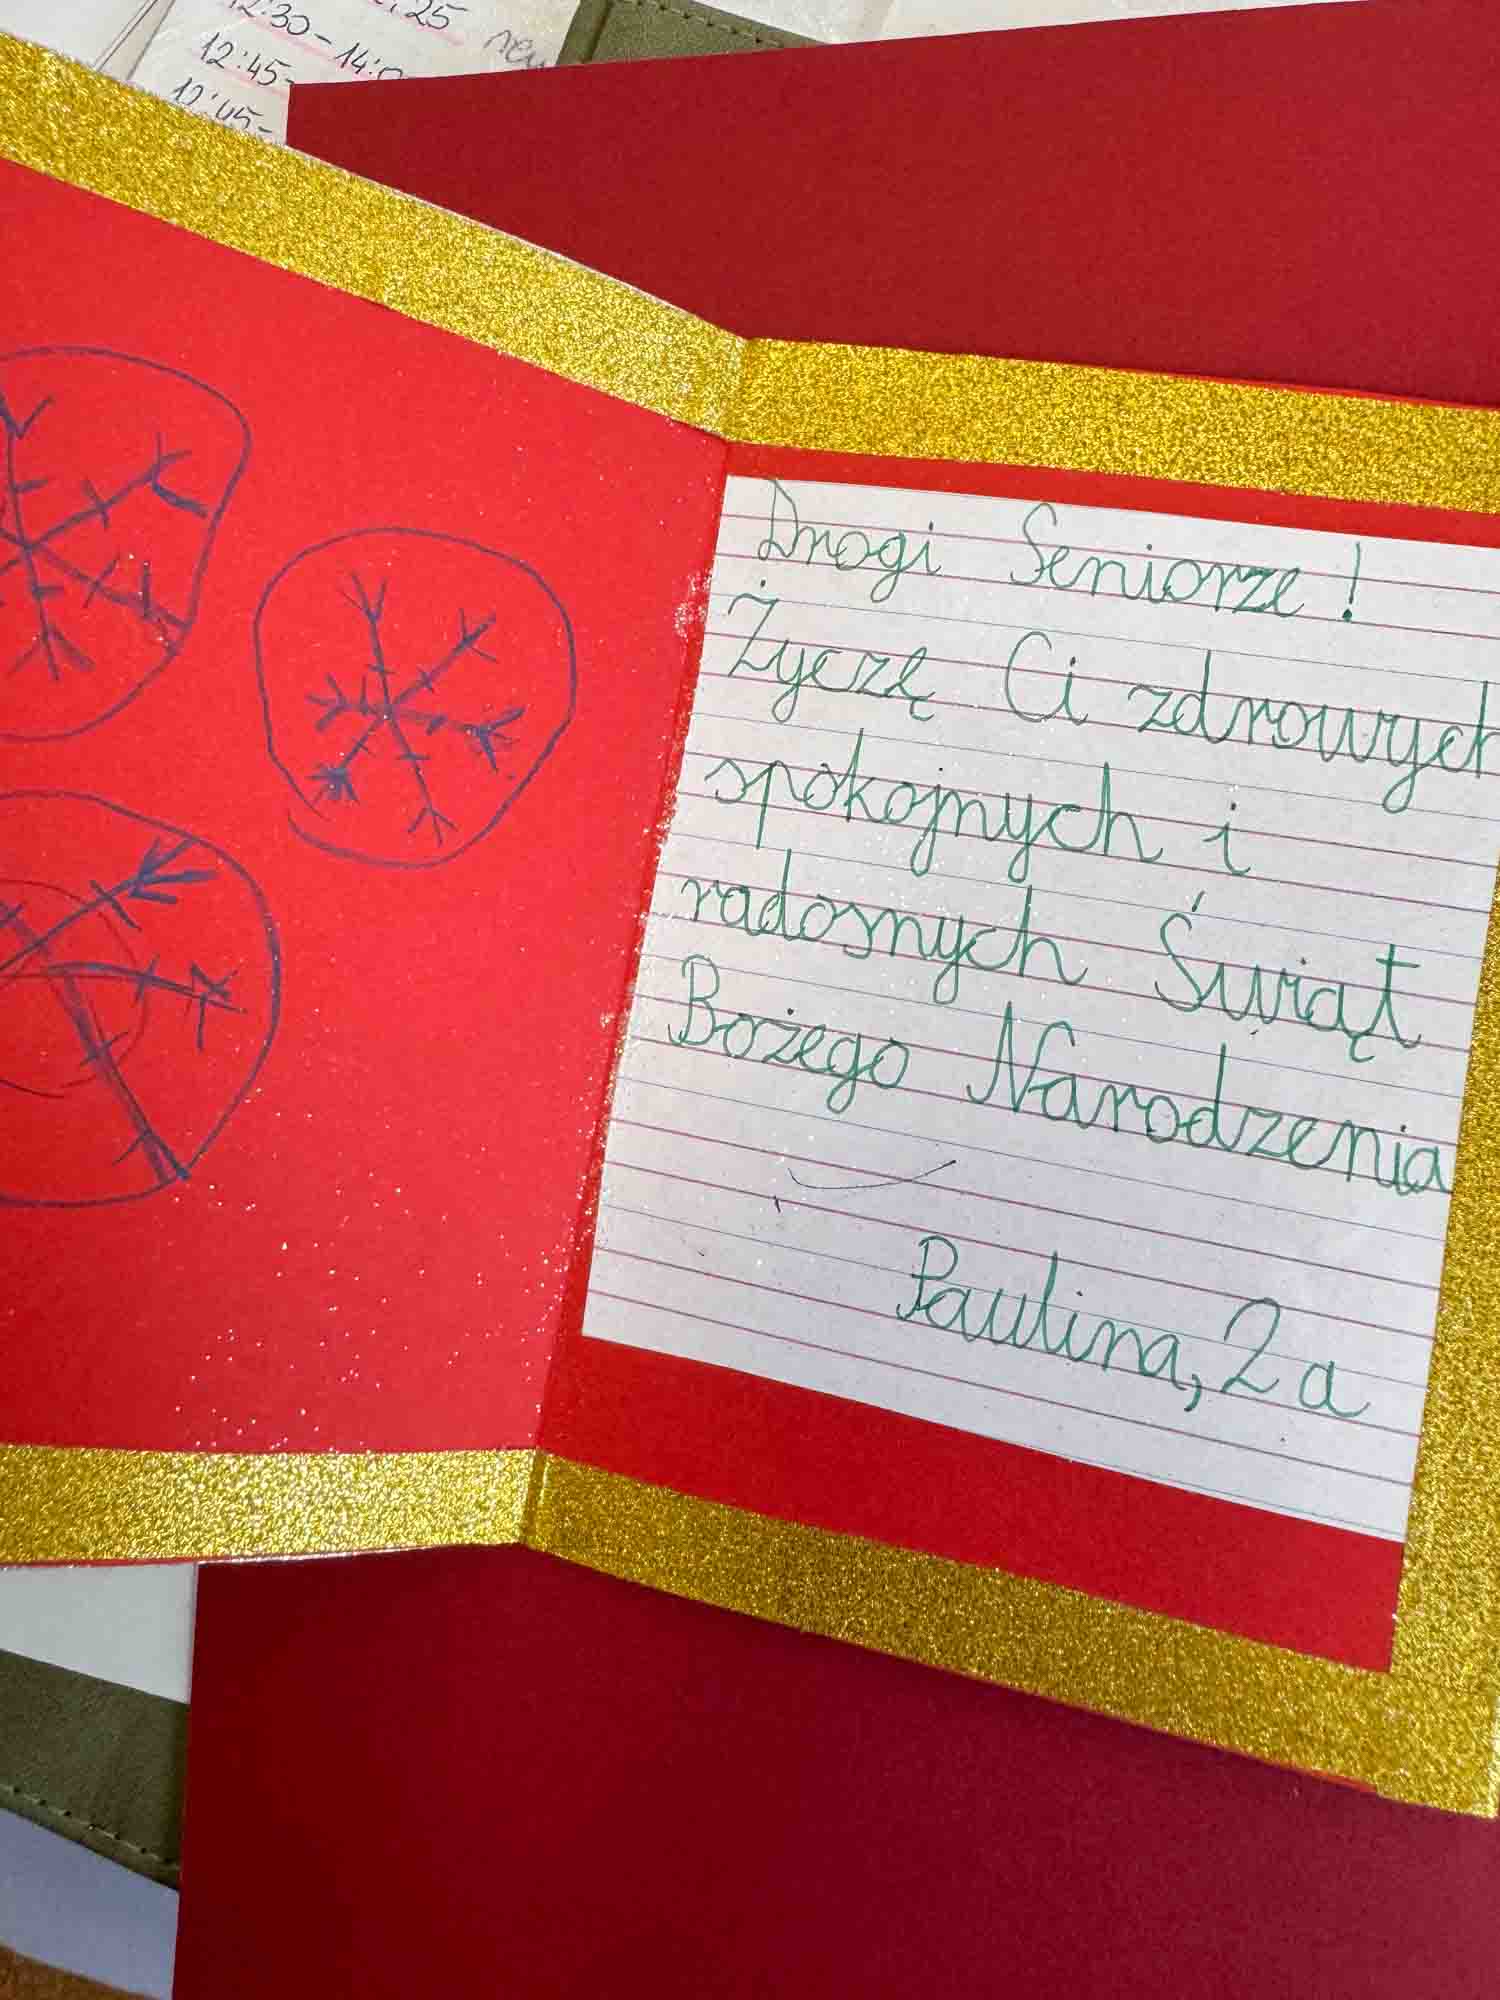 25
12:30-14:0
12:45-
12:45-
Drogi Seniorze!
Życzę Ci zdrowych
spokojnych i
radosnych Świąt
Bożego Narodzenia
Paulina, 2a